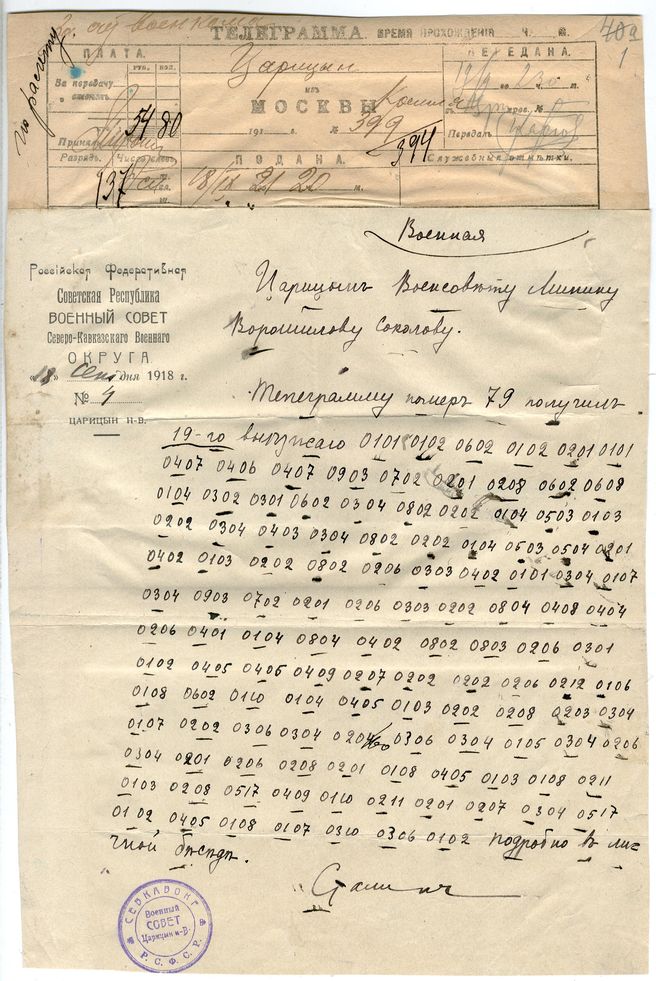 ТЕЛЕГРАММА. ВРЕМЯ ПРОХОЖДЕНІЯ Ч. М.
40а
1
по расчету
ПЛАТА.
РУБ. КОП.
За передачу
54 80
Царицын
изъ
МОСКВЫ
191 г. № 399
394
ПЕРЕДАНА.
19/9 го 2 30 м.
Передалъ
ПОДАНА.
Служебныя отмѣтки.
137
18/IX 21 20 м.
Военная
Россійская Федоративная
Советская Республика
ВОЕННЫЙ СОВЕТ
Северо-Кавказскаго Военнаго
ОКРУГА
"18" Сен дня 1918 г.
№ 4
ЦАРИЦЫН Н-В.
Царицынъ Военсовѣту Минину
Ворошилову Соколову.
Телеграмму номер 79 получилъ
19-го 0101 0102 0602 0102 0201 0101
0407 0406 0407 0903 0702 0201 0208 0602 0608
0104 0302 0301 0602 0304 0802 0202 0104 0503 0103
0202 0304 0403 0304 0802 0202 0104 0503 0504 0201
0402 0103 0202 0802 0206 0303 0402 0101 0304 0107
0304 0903 0702 0201 0206 0303 0202 0804 0408 0404
0206 0401 0104 0804 0402 0802 0803 0206 0301
0102 0405 0405 0409 0207 0202 0202 0206 0212 0106
0108 0602 0110 0104 0405 0103 0202 0208 0203 0304
0107 0202 0306 0304 0306 0304 0105 0304 0206
0304 0201 0206 0208 0201 0108 0405 0103 0108 0211
0103 0208 0517 0409 0110 0211 0201 0207 0304 0517
0102 0405 0108 0107 0310 0306 0102 подробно в ли-
чной бесѣдѣ.
Сталинъ
СЕВКАВОКР
Военный
СОВЕТ
Царицын н-В.
Р. С. Ф. С. Р.